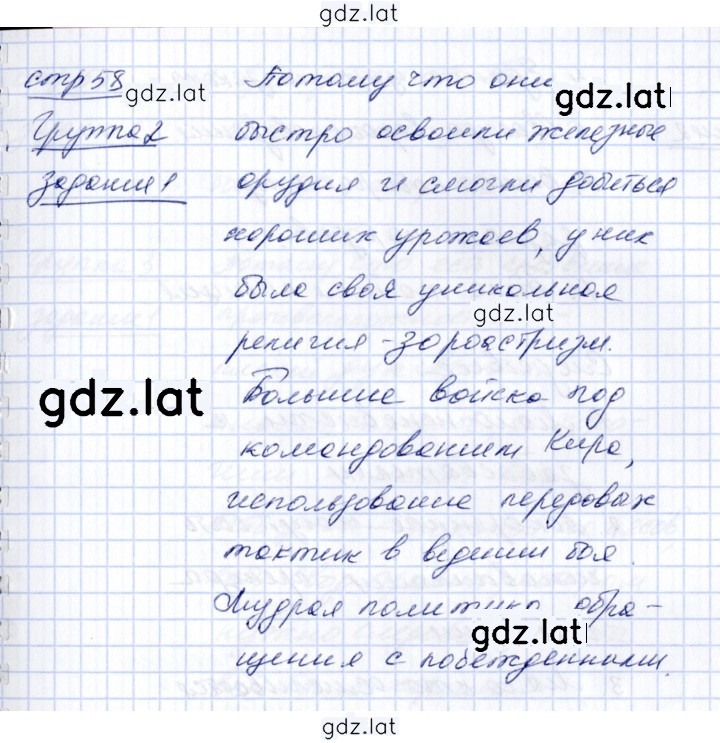 gdz.lat
стр 58 Потому что они
gdz.lat gdz.lat
Группа 2 быстро освоили железные
задание 1 орудия и смогли добиться
хороших урожаев, у них
была своя уникальная
gdz.lat
религия - зороастризм.
gdz.lat Большие войска под
командованием Кира,
использование передовах
тактик в ведении боя.
Мудрая политика обра-
gdz.lat
щения с побежденными.
gdz.lat